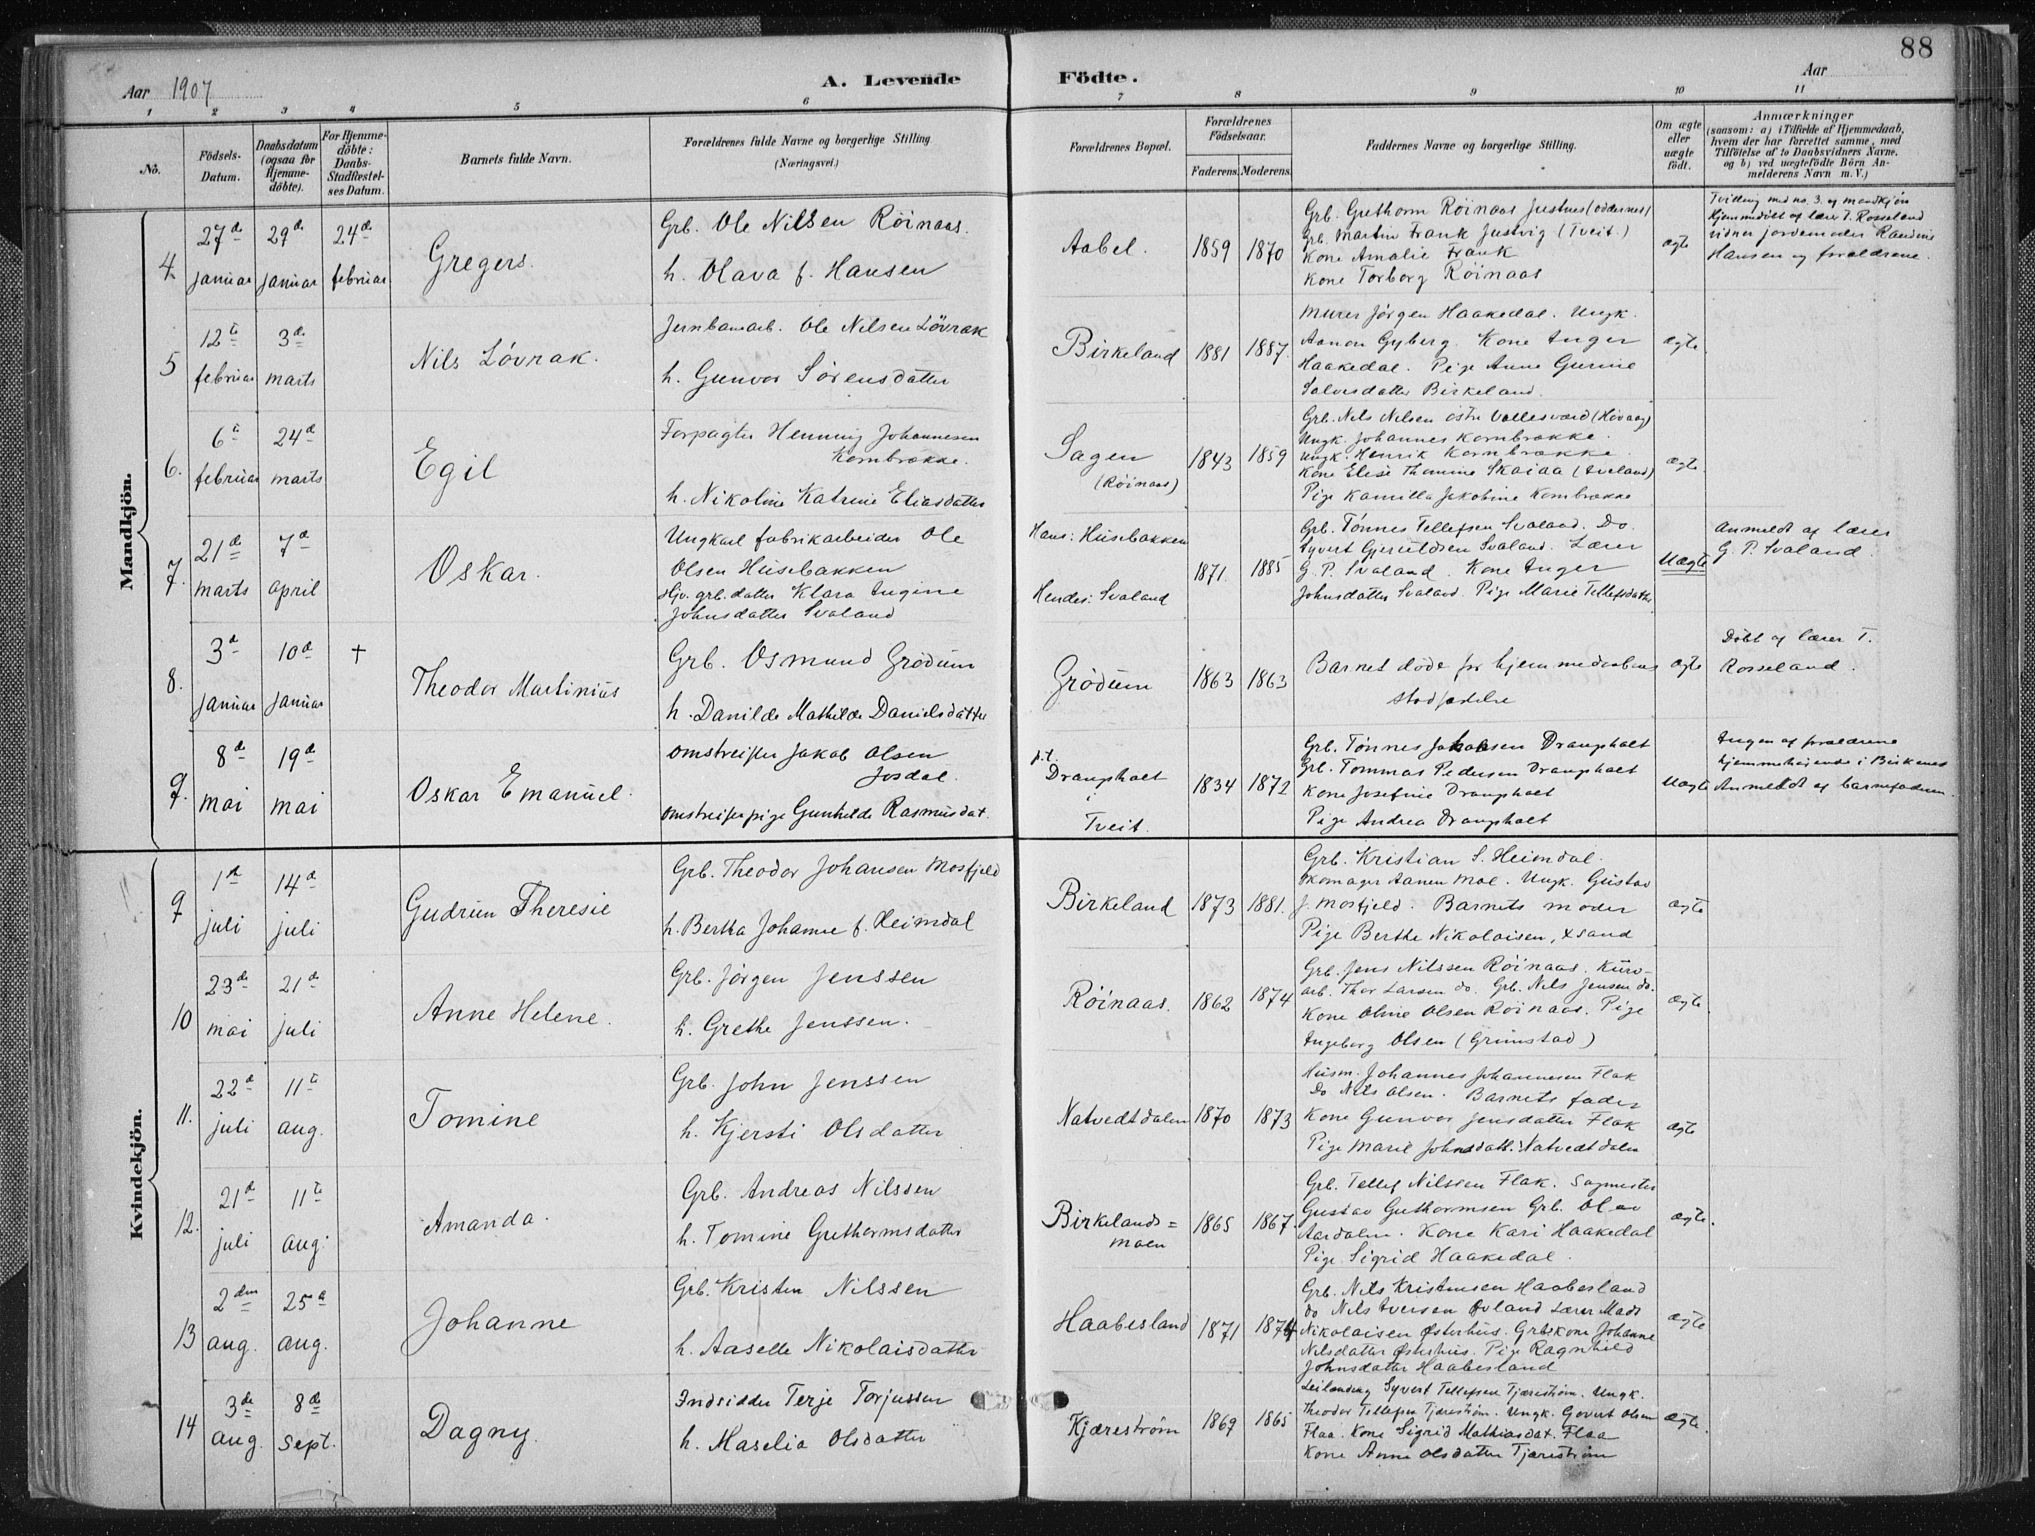 88
Aar 1907
A. Levende Födte.
Aar
1 2 3 4 5 6 7 8 9 10 11
No.
Födsels-Datum.
Daabsdatum (ogsaa for Hjemme-döbte).
For Hjemme-döbte: Daabs-Stadfæstel-ses Datum.
Barnets fulde Navn.
Forældrenes fulde Navne og borgerlige Stilling (Næringsvei.)
Forældrenes Bopæl.
Forældrenes Födselsaar.
Faderens. Moderens.
Faddernes Navne og borgerlige Stilling.
Om ægte eller uægte födt.
Anmærkninger
(saasom: a) i Tilfælde af Hjemmedaab,
hvem der har forrettet samme, med
Tilföielse af to Daabsvidners Navne,
og b) ved uægtefödte Börn An-
melderens Navn m. V.)
Mandkjön.
4. 27de januar 29de januar 24de februar
Gregers.
Grb. Ole Nilsen Röinaas.
h. Olava f. Hansen
Aabel. 1859 1870
Grb. Grethorm Röinaas Justnes (Oddernes)
Grb. Martin Frank Justvig (Tveit.)
Kone Amalie Frank
Kone Torborg Röinaas
ægte
Tvilling med no. 3. af mandkjön
Hjemmedöbt af lærer T. Rosseland
vidner jordemoder
Hansen og forældrene.
5 12te februar 3de marts
Nils Lövrak.
Jernbanearb. Ole Nilsen Lövrak
h. Gunvor Sörensdatter
Birkeland 1881 1887.
Murer Jörgen Haakedal. Ungk.
Aanon Gyberg. Kone Inger
Haakedal. Pige Anne Gurine
Salvesdatter Birkeland.
ægte
6. 6te februar 24de marts
Egil
Forpagter Henning Johannesen
Kornbrække.
h. Nikoline Katrine Eliasdatter
Sagen (Röinaas) 1843 1859
Grb. Nils Nilsen östre Vallesværd (Hövaag)
Ungk. Johannes Kornbrække.
Ungk. Henrik Kornbrække
Kone Elise Thomine Skaiaa (Iveland)
Pige Kamilla Jakobine Kornbrække
ægte.
7. 21de marts 7de april
Oskar.
Ungkarl fabrikarbeider Ole
Olsen Husebakken
Hjv. grb. datter Klara Ingine
Johnsdatter Svaland
Hans: Husebakken
Hendes: Svaland
1871. 1885
Grb. Tönnes Tellefsen Svaland. Do.
Syvert Gjeruldsen Svaland. Lærer
G. P. Svaland. Kone Inger
Johnsdatter Svaland. Pige Marie Tellefsdatter
Uægte
Anmeldt af lærer
G. P. Svaland.
8. 3de januar 10de januar +
Theodor Martinius
Grb. Osmund Grödum
h. Danilde Mathilde Danielsdatter
Grödum 1863 1863
Barnet döde för hjemmedaabens
stadfæstelse
ægte
Döbt af lærer T.
Rosseland.
9. 8de mai 19de mai
Oskar Emanuel.
Omstreifer Jakob Olsen
Josdal.
Omstreiferpige Gunhilde Rasmusdat.
p.t.
Drangsholt
i
Tveit.
1834 1872
Grb. Tönnes Jakobsen Drangsholt
Grb. Tommas Pedersen Drangsholt
Kone Josefine Drangsholt
Pige Andrea Drangsholt
Uægte
Ingen af forældrene
hjemmehörende i Birkenes
Anmeldt af barnefaderen.
Kvindekjön.
9 1ste juli 14de juli
Gudrun Theresie
Grb. Theodor Johansen Mosfjeld
h. Bertha Johanne f. Heimdal
Birkeland 1873 1881.
Grb. Kristian S. Heimdal.
Skomager Aanen Moe. Ungk. Gustav
J. Mosfjeld. Barnets moder
Pige Berthe Nikolaisen, Xsand
ægte
10 23de mai 21de juli
Anne Helene.
Grb. Jörgen Jenssen
h. Grethe Jenssen.
Röinaas. 1862 1874
Grb. Jens Nilssen Röinaas. Kurv-
arb. Thor Larsen do. Grb. Nils Jensen do.
Kone Oline Olsen Röinaas. Pige
Ingeborg Olsen (Grimstad)
ægte.
11. 22de juli 11te aug.
Tomine
Grb. John Jenssen
h. Kjersti Olsdatter
Natvedtdalen 1870 1873
Husm. Johannes Johannesen Flak
Do Nils Olsen. Barnets fader
Kone Gunvor Jensdatter Flak
Pige Marie Johnsdatt. Natvedtdalen
ægte
12. 21de juli 11te aug.
Amanda.
Grb. Andreas Nilssen
h. Tomine Guthormsdatter
Birkelands=
moen
1865 1867.
Grb. Tellef Nilssen Flak. Sagmester
Gustav Guthormsen Grb. Olav
Aardalen. Kone Kari Haakedal
Pige Sigrid Haakedal.
ægte.
13 2den aug. 25de aug.
Johanne
Grb. Kristen Nilssen
h. Aaselle Nikolaisdatter
Haabesland 1871 1874
Grb. Nils Kristensen Haabesland
do Nils Iversen Övland Lærer Mads
Nikolaisen Österhus. Grb.kone Johanne
Nilsdatter Österhus. Pige Ragnhild
Johnsdatter Haabesland
ægte
14 3de aug. 8de sept.
Dagny.
Indsidder Terje Torjussen
h. Maselia Olsdatter
Kjærestrøm 1869 1865
Leilænding Syvert Tellefsen Tjærestrøm. Ungk.
Theodor Tellefsen Tjærestrøm. Ungk. Govert Olsen
Flaa. Kone Sigrid Mathiasdat. Flaa
Kone Anne Olsdatter Tjærestrøm
ægte.